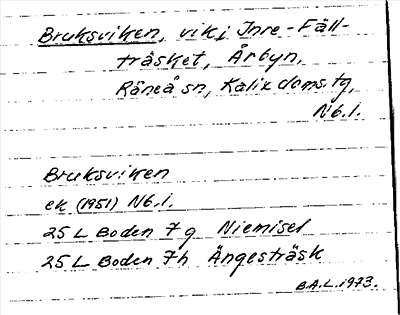 Bruksviken, vik i Inre-Fäll-
träsket, Årbyn,
Råneå sn, Kalix doms.tg,
Nb.l.
Bruksviken
ek (1951) Nb.l.
25 L Boden 7g Niemisel
25 L Boden 7h Ängesträsk
B.A.L. 1973.